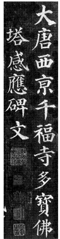 大唐西京千福寺多寶佛
塔感應碑文